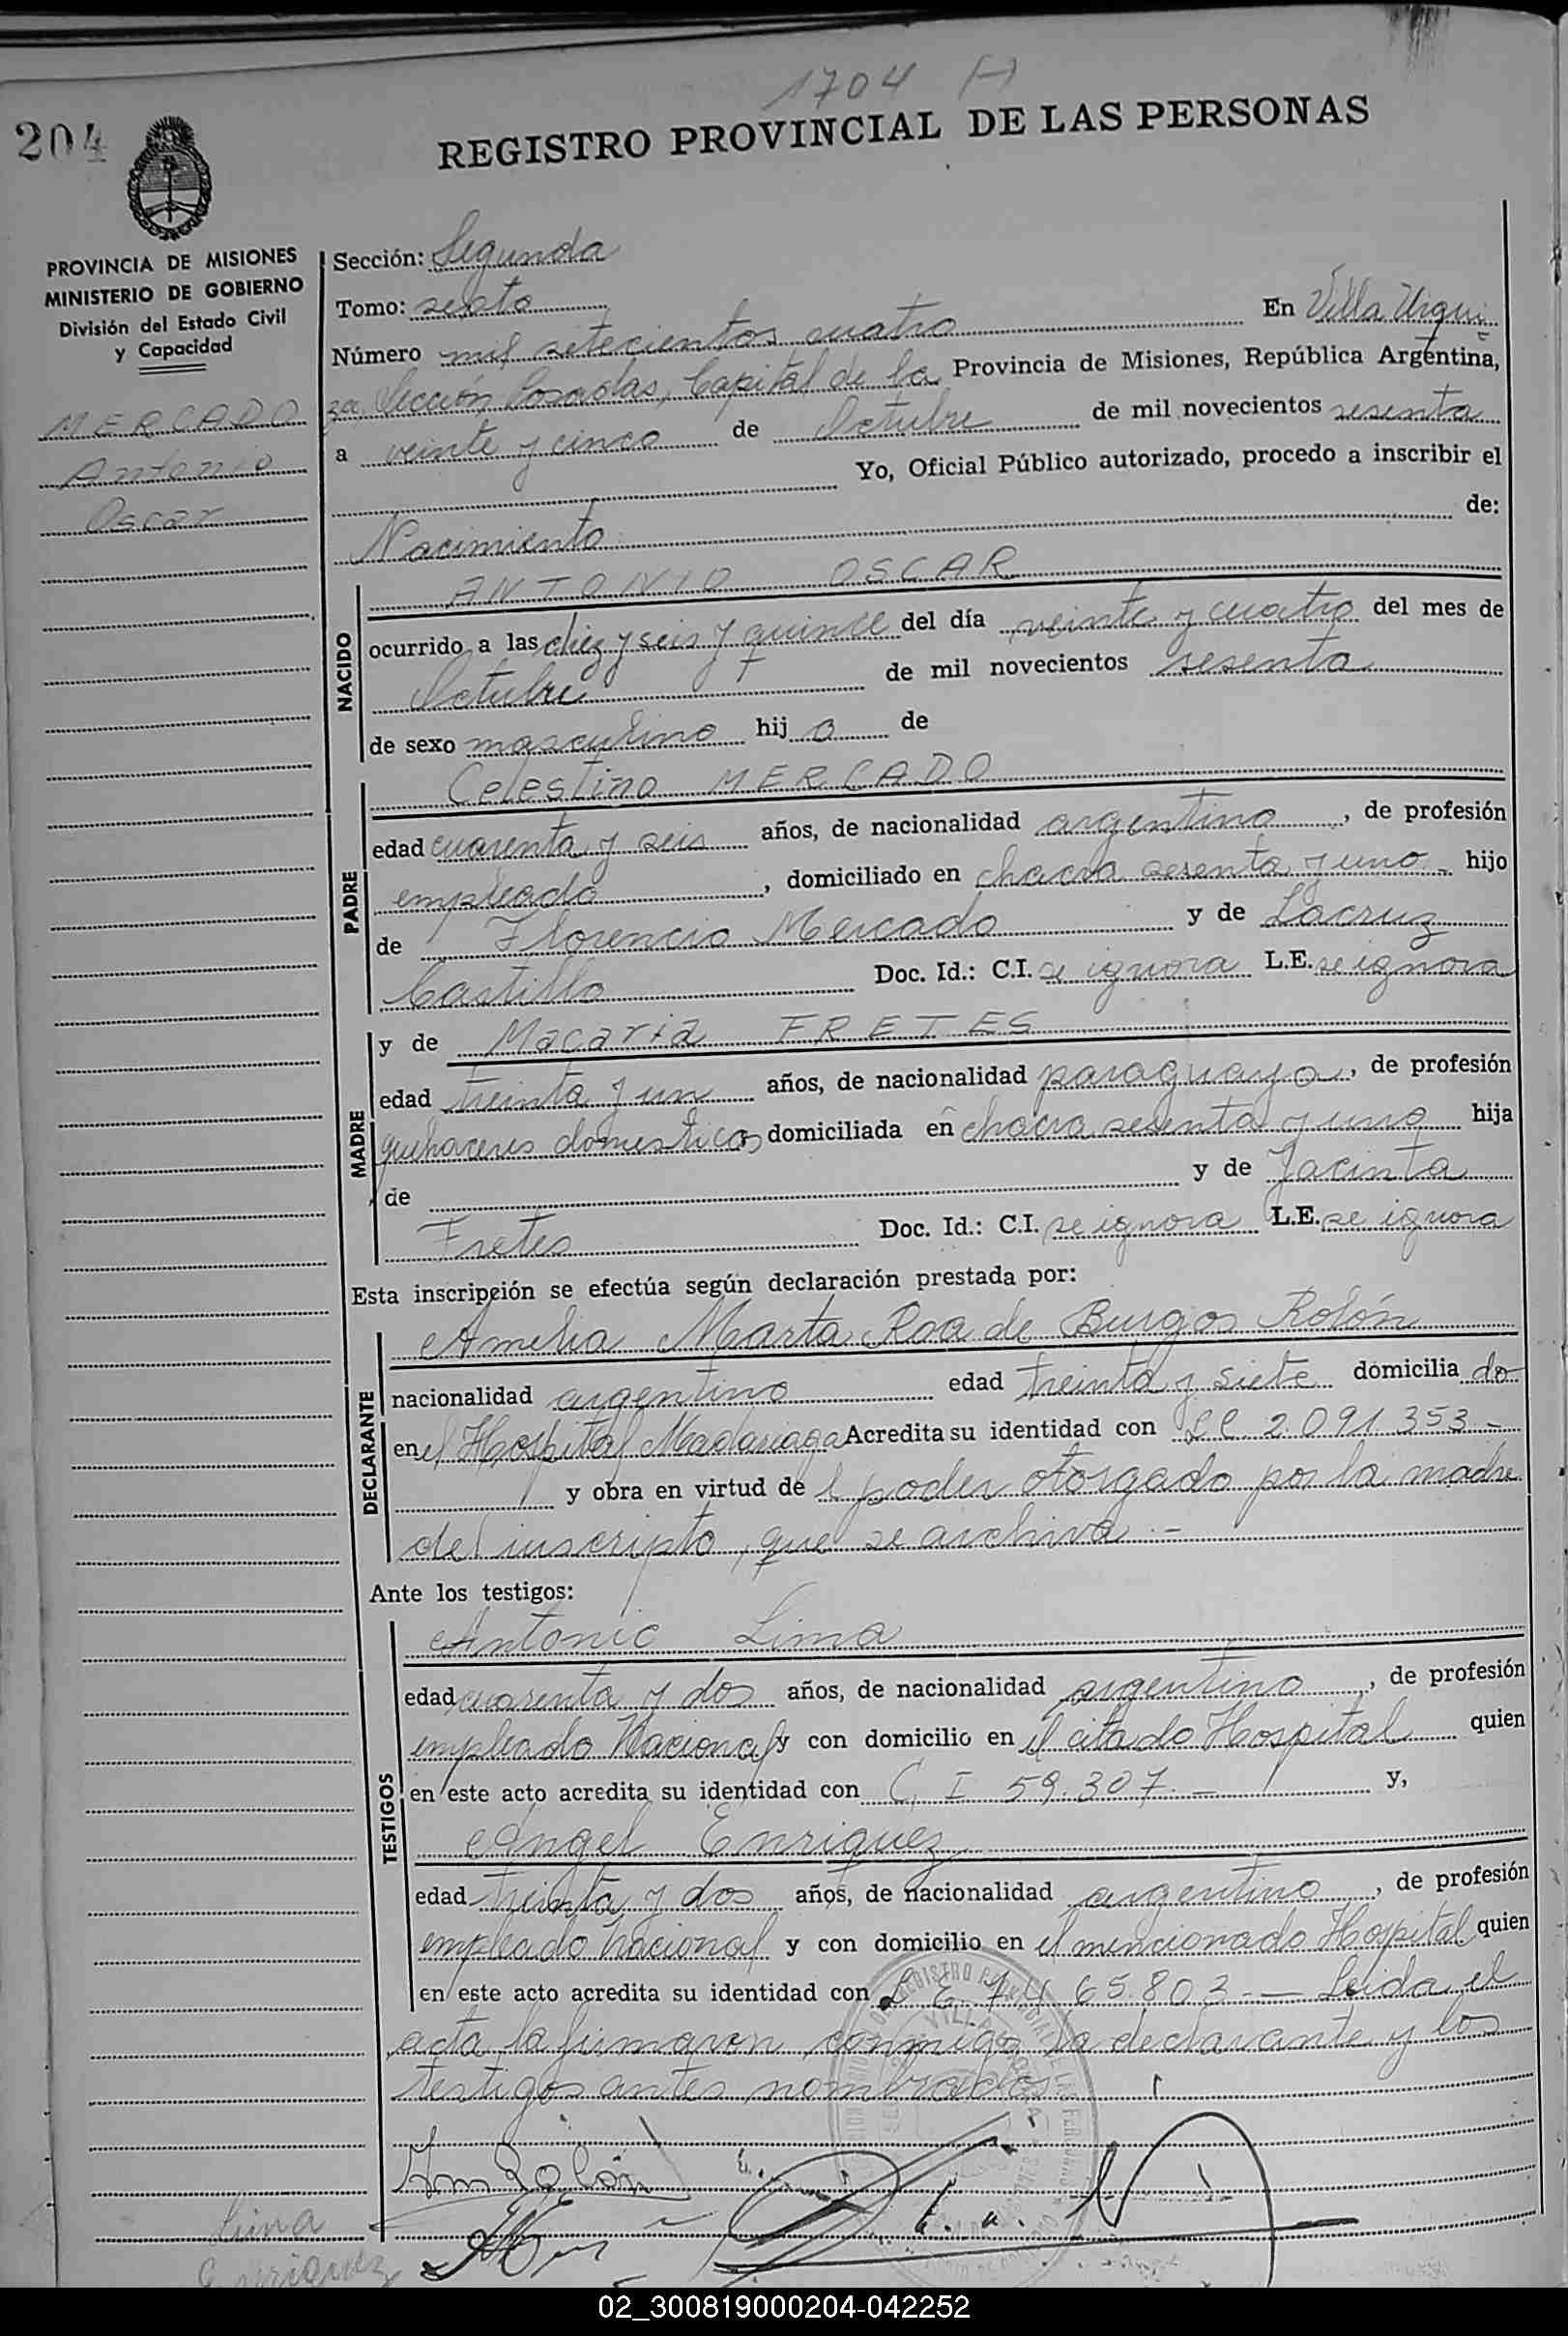 1704 (-)
204
REGISTRO PROVINCIAL DE LAS PERSONAS
PROVINCIA DE MISIONES
MINISTERIO DE GOBIERNO
División del Estado Civil
y Capacidad
MERCADO
Antonio
Oscar
Sección: Segunda
Tomo: sexto
Número mil setecientos cuatro En Villa Urqui
za Sección Posadas, Capital de la Provincia de Misiones, República Argentina,
a veinte y cinco de Octubre de mil novecientos sesenta
Yo, Oficial Público autorizado, procedo a inscribir el
Nacimiento de:
NACIDO
ANTONIO OSCAR
ocurrido a las diez y seis y quince del día veinte y cuatro del mes de
Octubre de mil novecientos sesenta
de sexo masculino hij o de
PADRE
Celestino MERCADO
edad cuarenta y seis años, de nacionalidad argentino, de profesión
empleado, domiciliado en chacra sesenta y uno hijo
de Florencio Mercado y de Lacruz
Castillo Doc. Id.: C.I. se ignora L.E. se ignora
MADRE
y de Macaria FRETES
edad treinta y un años, de nacionalidad paraguaya, de profesión
quehaceres domesticos domiciliada en chacra sesenta y uno hija
de y de Jacinta
Fretes Doc. Id.: C.I. se ignora L.E. se ignora
Esta inscripción se efectúa según declaración prestada por:
DECLARANTE
Amelia Marta Roa de Burgos Rolón
nacionalidad argentino edad treinta y siete domicilia do
en el Hospital Madariaga Acredita su identidad con LC 2.091.353 -
y obra en virtud de l poder otorgado por la madre
del inscripto, que se archiva. -
Ante los testigos:
TESTIGOS
Antonio Lima
edad cuarenta y dos años, de nacionalidad argentino, de profesión
empleado Nacional y con domicilio en el citado Hospital quien
en este acto acredita su identidad con C. I 59.307. - y,
Angel Enriquez
edad treinta y dos años, de nacionalidad argentino, de profesión
empleado nacional y con domicilio en el mencionado Hospital quien
en este acto acredita su identidad con L. E. 7.465.803 - Leida el
acta la firmaron conmigo la declarante y los
testigos antes nombrados
Am Rolón
Lima
Enriquez
02_300819000204-042252